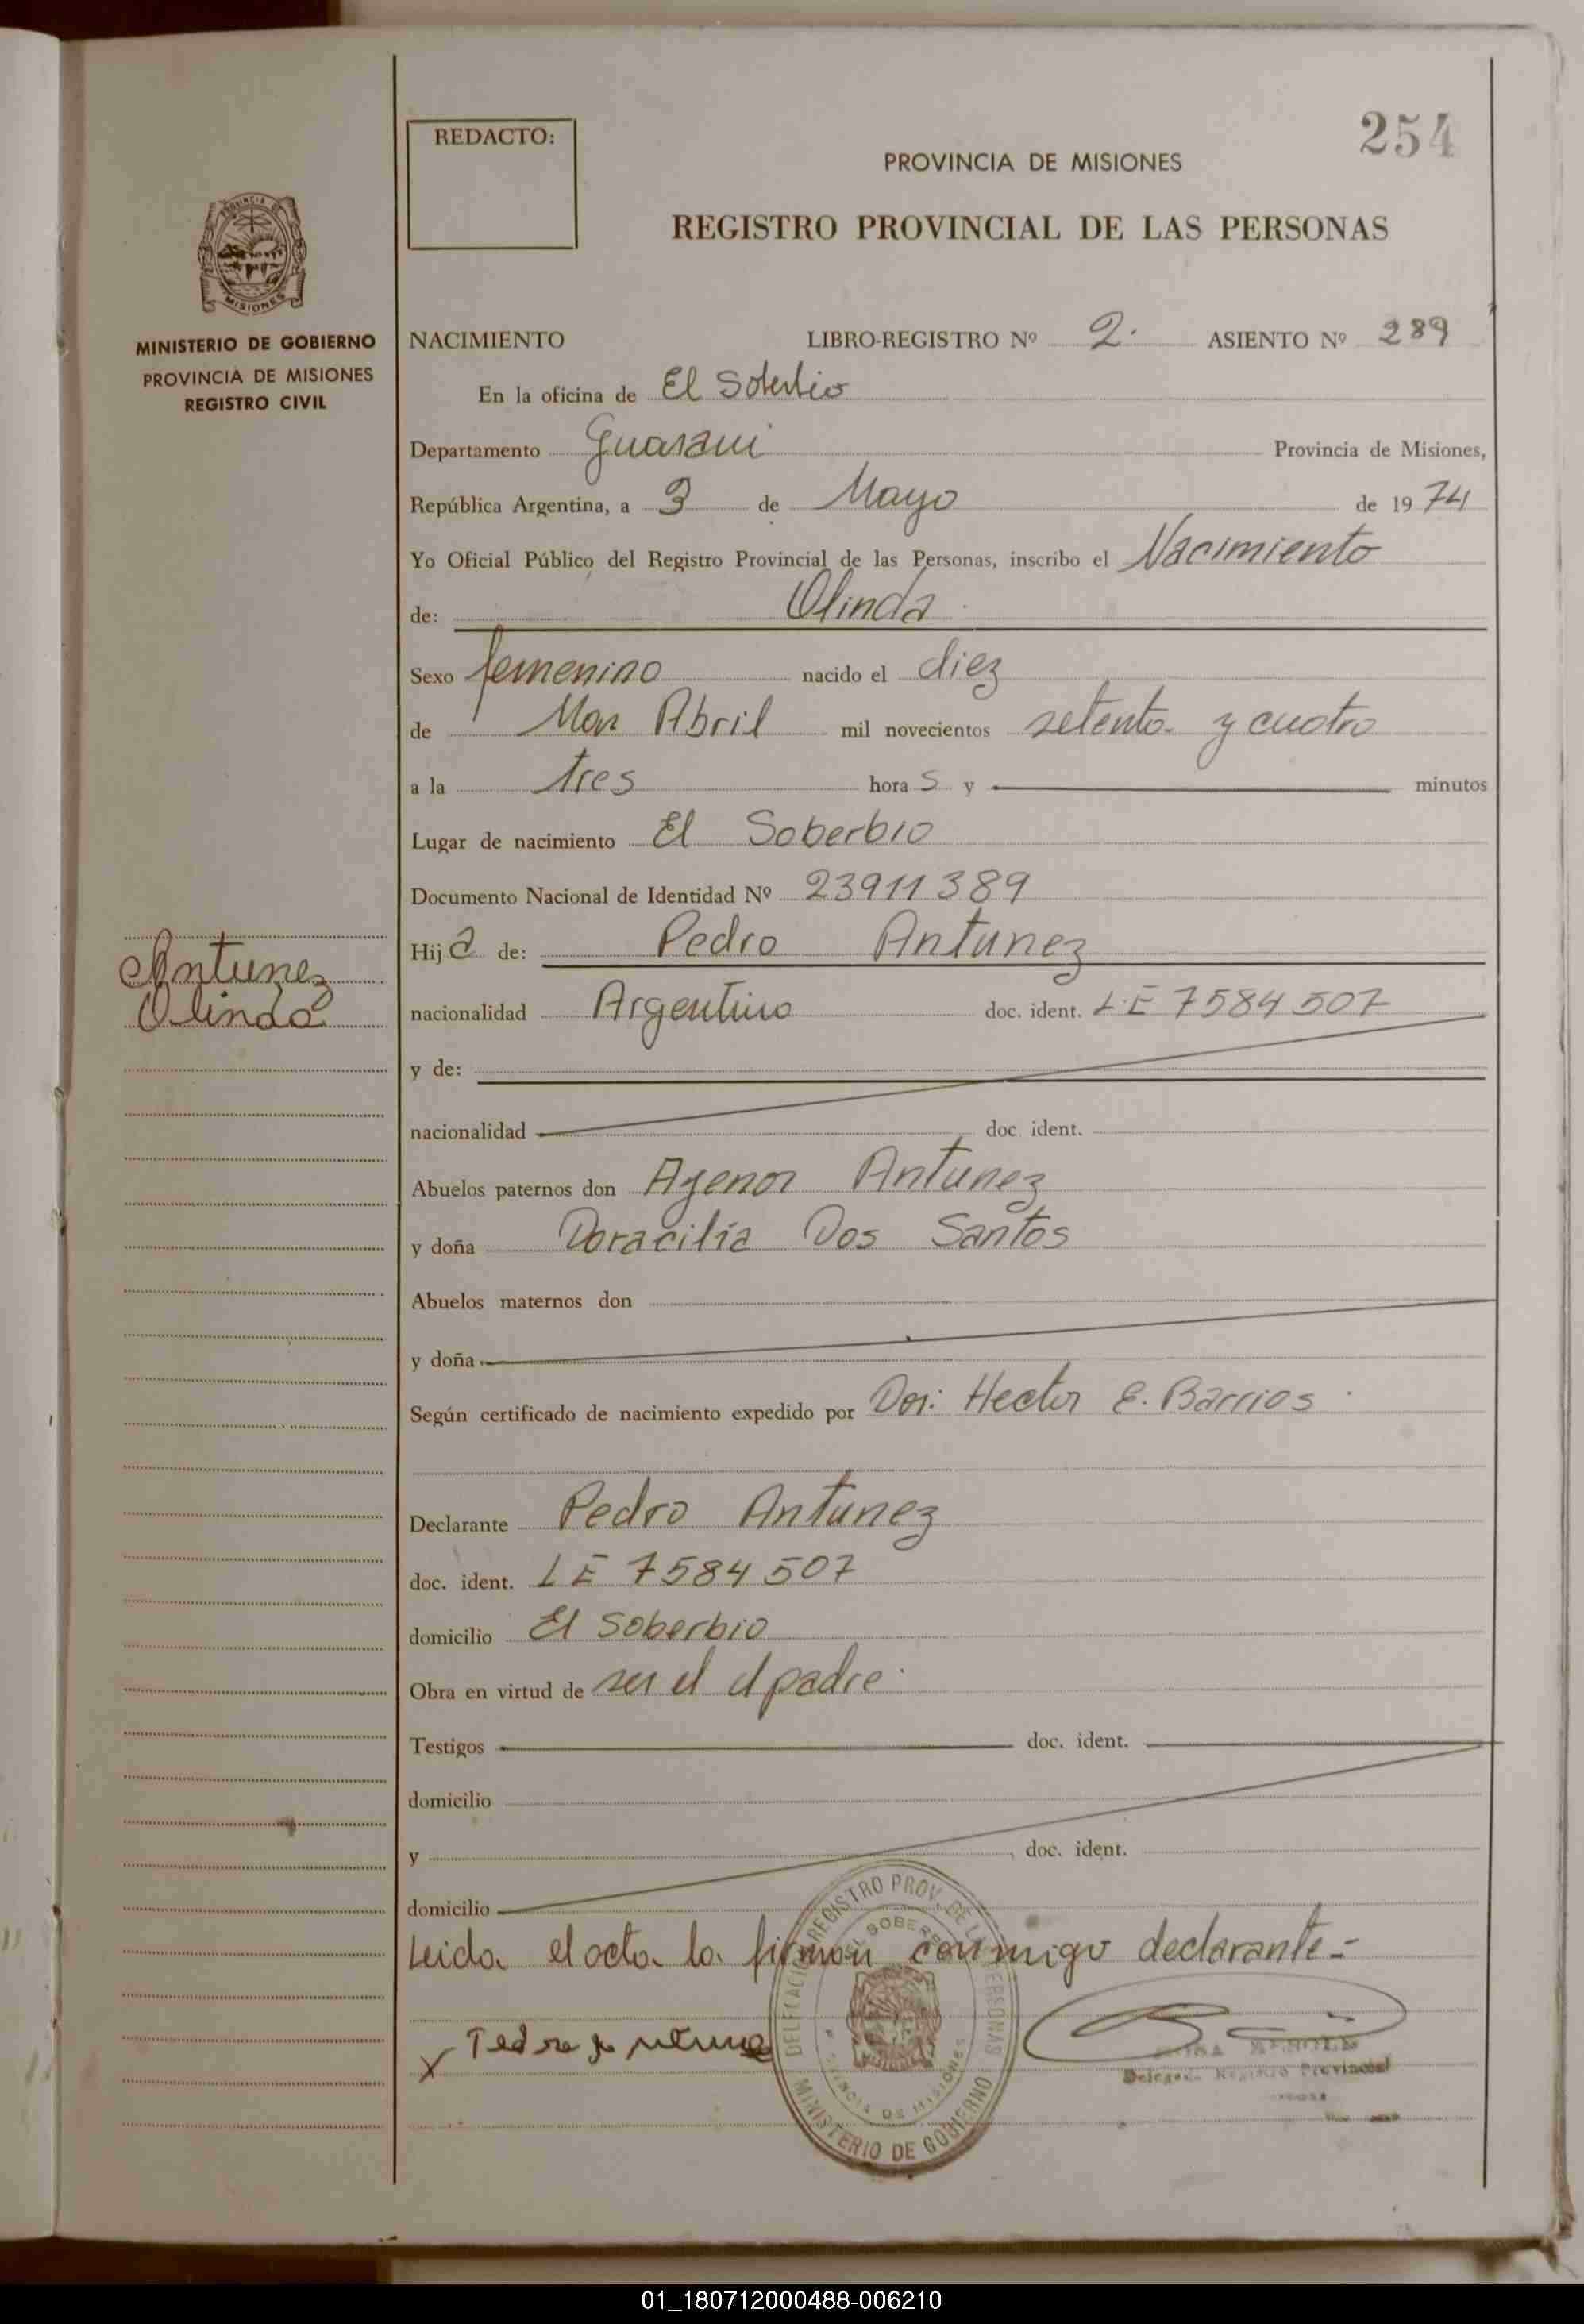 254
REDACTO:
PROVINCIA DE MISIONES
REGISTRO PROVINCIAL DE LAS PERSONAS
MISIONES
MINISTERIO DE GOBIERNO
PROVINCIA DE MISIONES
REGISTRO CIVIL
NACIMIENTO LIBRO-REGISTRO Nº 2. ASIENTO Nº 289
En la oficina de El Soberbio
Departamento Guarani Provincia de Misiones,
República Argentina, a 3 de Mayo de 1974
Yo Oficial Público del Registro Provincial de las Personas, inscribo el Nacimiento
de: Olinda
Sexo femenino nacido el diez
de Abril mil novecientos setenta y cuatro
a la tres hora s y minutos
Lugar de nacimiento El Soberbio
Documento Nacional de Identidad Nº 23911389
Hija de: Pedro Antunez
Antunez
Olinda
nacionalidad Argentino doc. ident. LE 7584507
y de:
nacionalidad doc. ident.
Abuelos paternos don Agenor Antunez
y doña Doracilia Dos Santos
Abuelos maternos don
y doña
Según certificado de nacimiento expedido por Hector E. Barrios
Declarante Pedro Antunez
doc. ident. LE 7584507
domicilio El Soberbio
Obra en virtud de ser el el padre
Testigos doc. ident.
domicilio
y doc. ident.
domicilio
Leida el acta la firman conmigo declarante.-
DELEGACION REGISTRO PROV. DE LAS PERSONAS
EL SOBERBIO
PROVINCIA DE MISIONES
MINISTERIO DE GOBIERNO
X Pedro
Registro Provincial
01_180712000488-006210